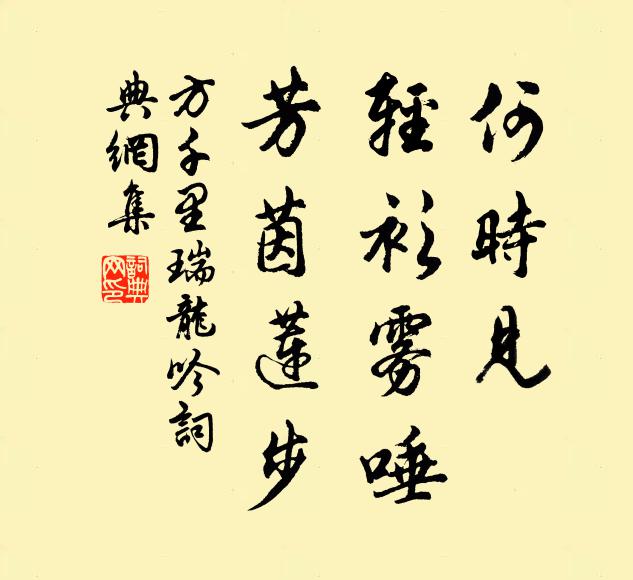 何時見
輕衫霧唾
芳茵蓮步
方千里瑞龍吟詞
典網集
詞典網印